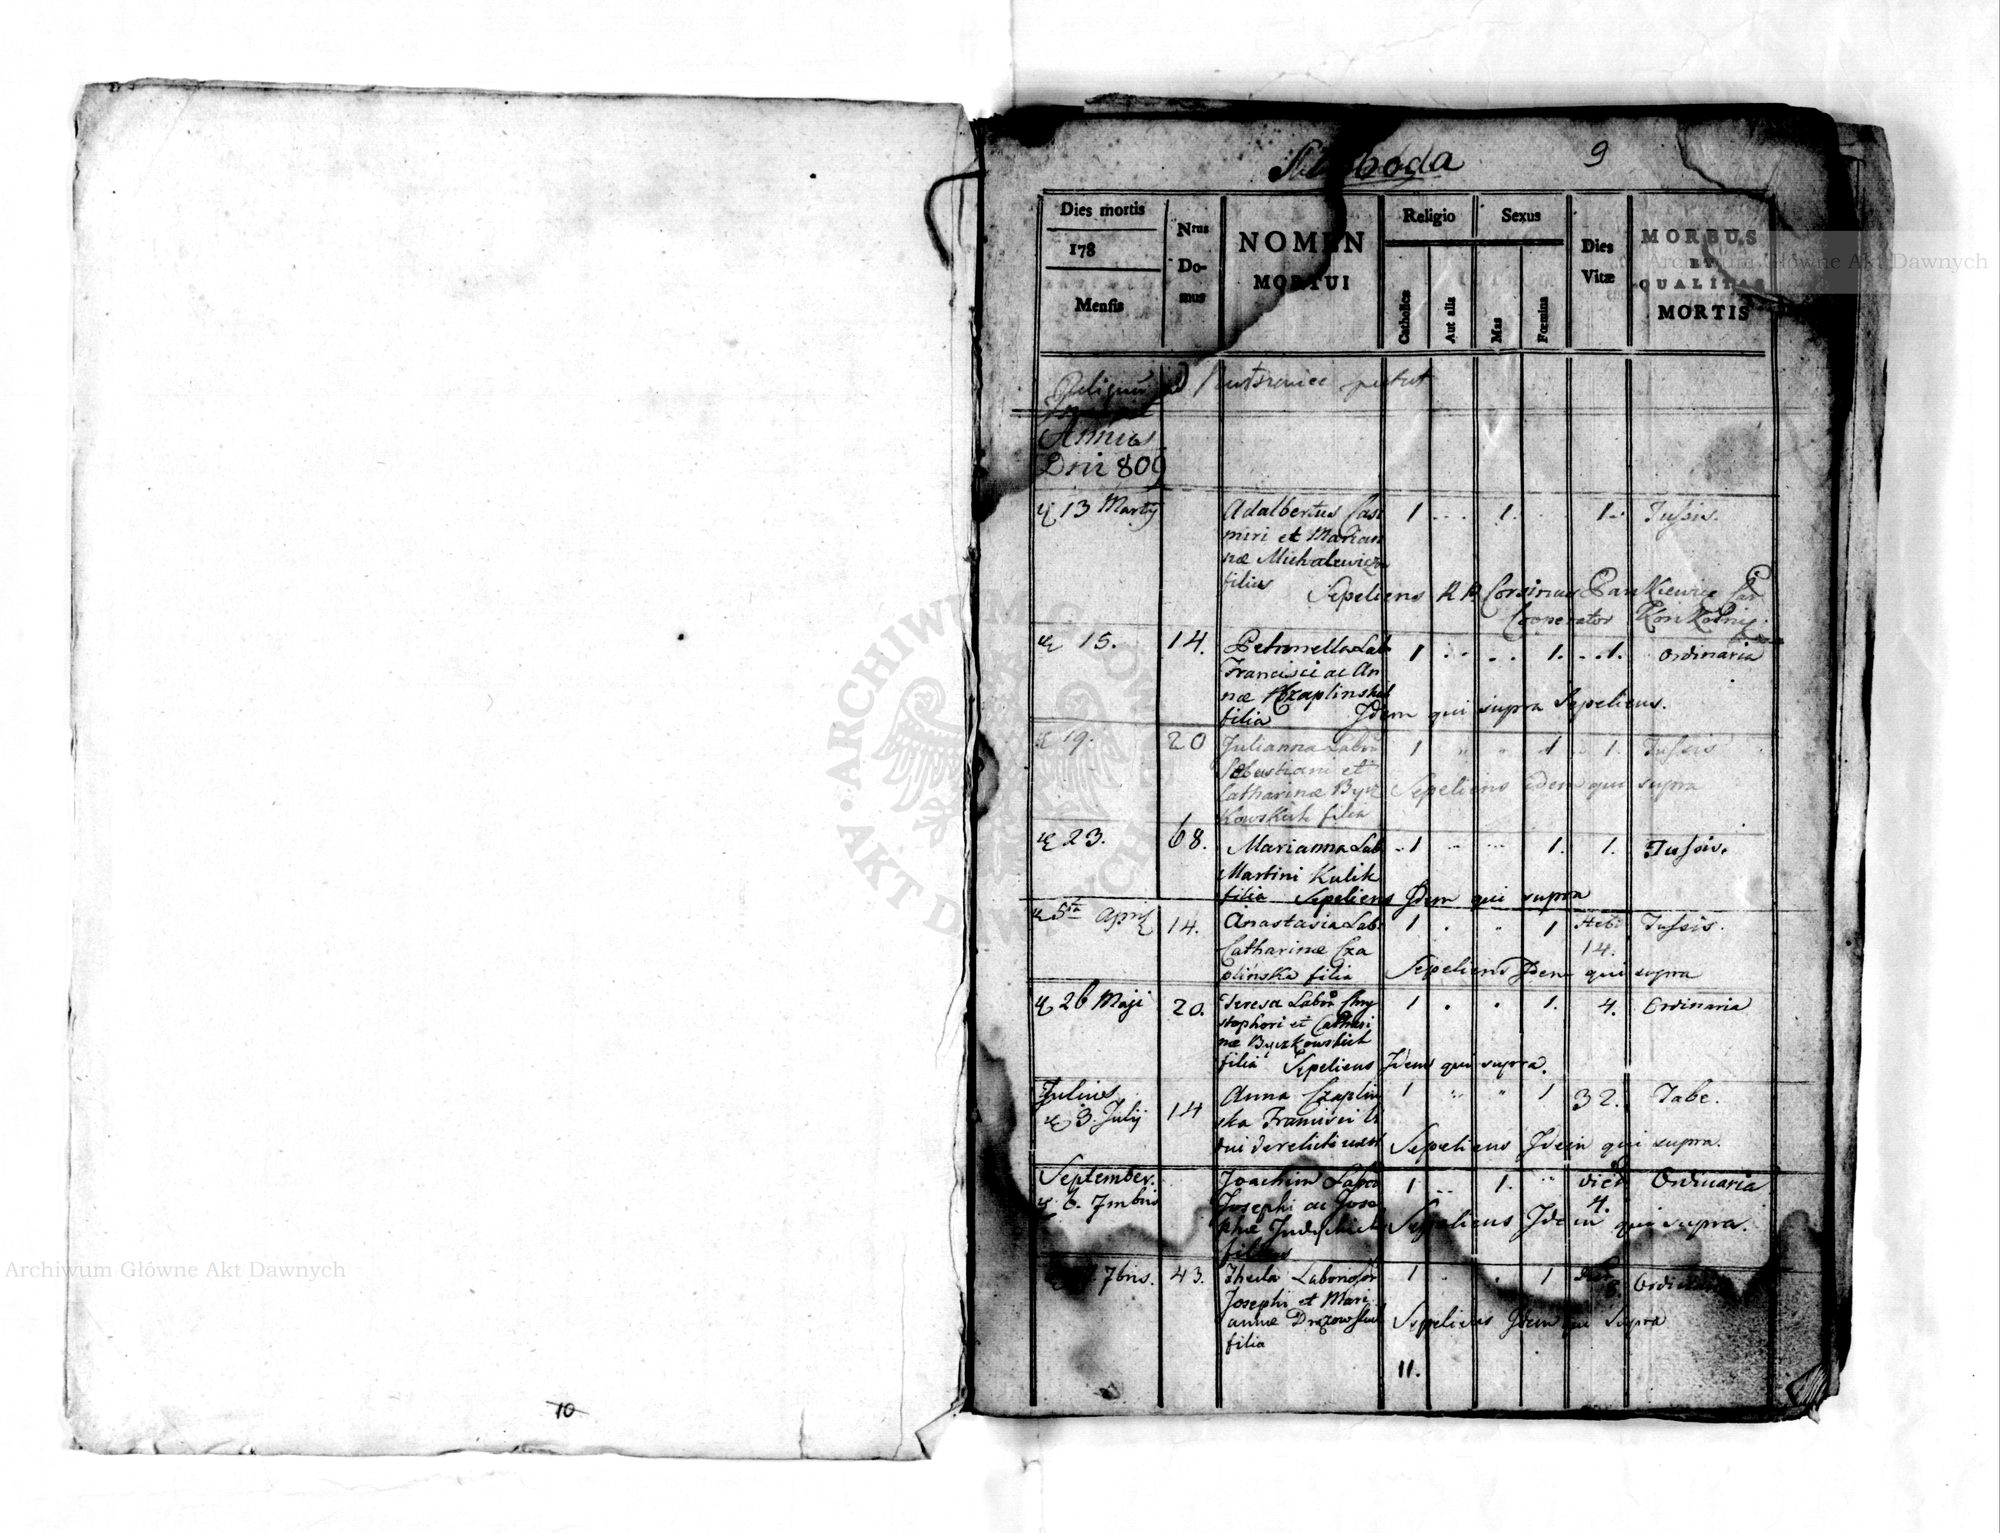 10
9
Dies mortis
178
Mensis
Nrus Domus
NOMEN
MORTUI
Religio
Catholica
Aut alia
Sexus
Mas
Fœmina
Dies
Vitæ
MORBUS
ET
QUALITAS
MORTIS
Annus
Dni 809
13 Martij Adalbertus Casi 1 1. 1. Tussis.
miri et Marian
næ Michalewicz
filius
Sepeliens
Cooperator
15. 14. Petronella Lab. 1 1. 1. Ordinaria
Francisci ac An
næ Czaplinskich
filia Idem qui supra Sepeliens.
19. 20 Julianna Labor 1 1 1. Tussis
Sebastiani et
Catharinæ Bycz Sepeliens Idem qui supra
kowskich filia
23. 68. Marianna Lab 1 1. 1. Tussis.
Martini Kulik
filia Sepeliens Idem qui supra
5ta Aprilis 14. Anastasia Lab. 1 1 Heb. Tussis.
14.
Catharinæ Cza
plinska filia Sepeliens Idem qui supra
26 Maji 20. Teresa Labor Chry 1 1. 4. Ordinaria
stophori et Cathari
næ Byczkowskich
filia Sepeliens Idem qui supra.
Julius
3. Julij 14 Anna Czaplin 1 1 32. Tabe.
ska Francisci
derelicti Sepeliens Idem qui supra.
September.
6. 7mbris Joachim Labor 1 1. Dier 4. Ordinaria
Josephi ac Jose
phæ Sepeliens Idem qui supra.
filius
7bris. 43. Thecla Laboriosor 1 1 Ordinaria
Josephi et Mari
annæ Drozowskich Sepeliens Idem qui supra
filia
11.
Archiwum Główne Akt Dawnych
Archiwum Główne Akt Dawnych
ARCHIWUM GŁÓWNE AKT DAWNYCH